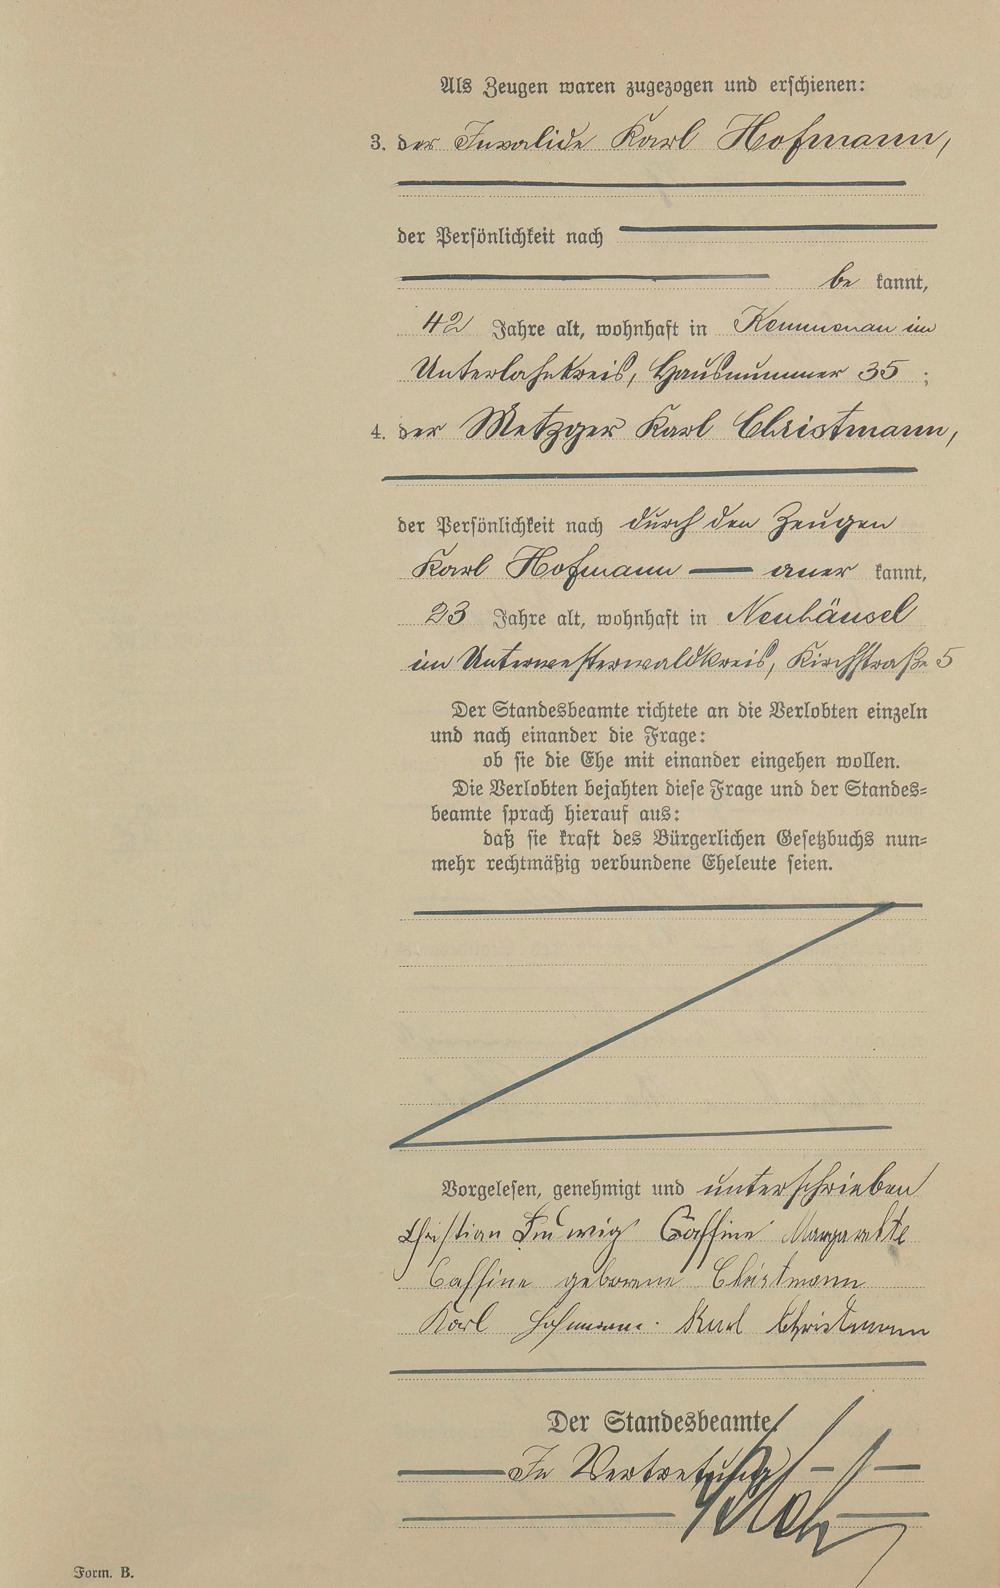 Als Zeugen waren zugezogen und erschienen:
3. der Invalide Karl Hofmann,
der Persönlichkeit nach
be kannt,
42 Jahre alt, wohnhaft in Kemmenau im
Unterlahnkreis, Hausnummer 35 ;
4. der Metzger Karl Christmann,
der Persönlichkeit nach durch den Zeugen
Karl Hofmann — aner kannt,
23 Jahre alt, wohnhaft in Neuhäusel
im Unterwesterwaldkreis, Kirchstraße 5
Der Standesbeamte richtete an die Verlobten einzeln
und nach einander die Frage:
ob sie die Ehe mit einander eingehen wollen.
Die Verlobten bejahten diese Frage und der Standes=
beamte sprach hierauf aus:
daß sie kraft des Bürgerlichen Gesetzbuchs nun=
mehr rechtmäßig verbundene Eheleute seien.
Vorgelesen, genehmigt und unterschrieben
Christian Ludwig Caffine Margarethe
Caffine geborene Christmann
Karl Hofmann. Karl Christmann
Der Standesbeamte.
In Vertretung
Form. B.